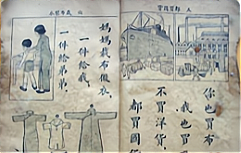 你也買布
我也買
不買洋貨
都買國
媽媽裁布做衣，
一件給我，
一件給弟弟。